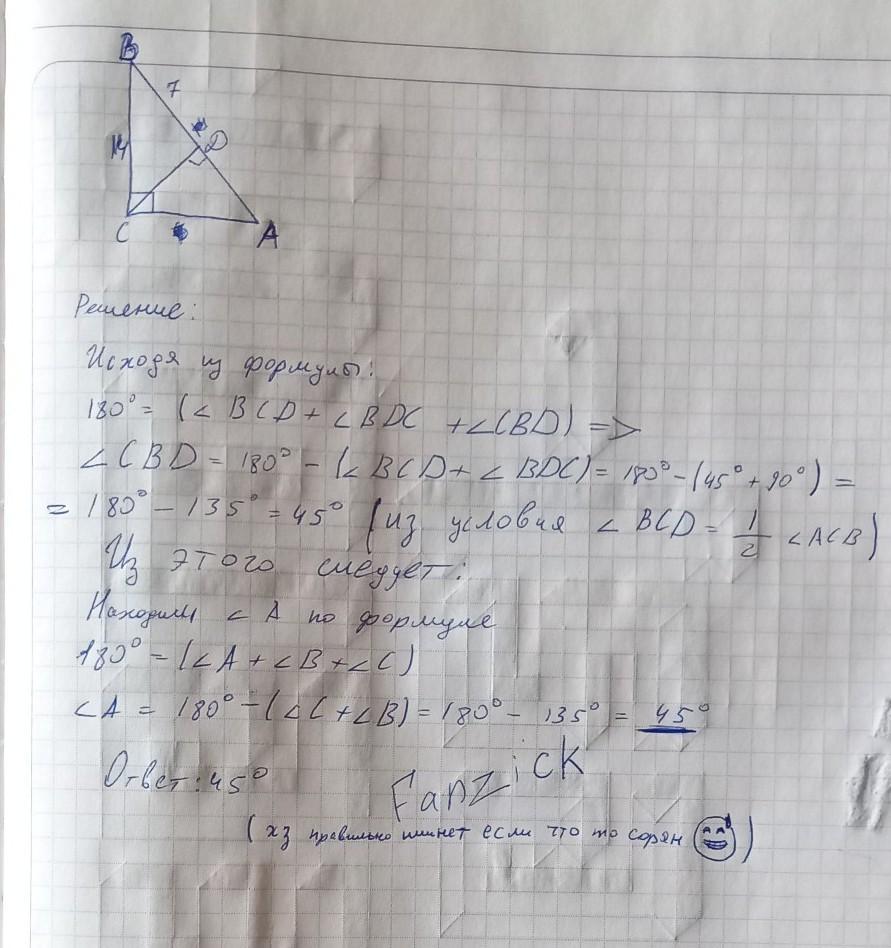 B
7
14
D
C
A
Решение:
Исходя из формулы:
180° = (∠ BCD + ∠BDC + ∠CBD) =>
∠CBD = 180° - (∠BCD + ∠BDC) = 180° - (45° + 90°) =
= 180° - 135° = 45° (из условия ∠ BCD = 1/2 ∠ACB)
Из этого следует:
Находим ∠ A по формуле
180° = (∠A + ∠B + ∠C)
∠A = 180° - (∠C + ∠B) = 180° - 135° = 45°
Ответ: 45°
Fanzick
(хз правильно или нет если что то сорян)